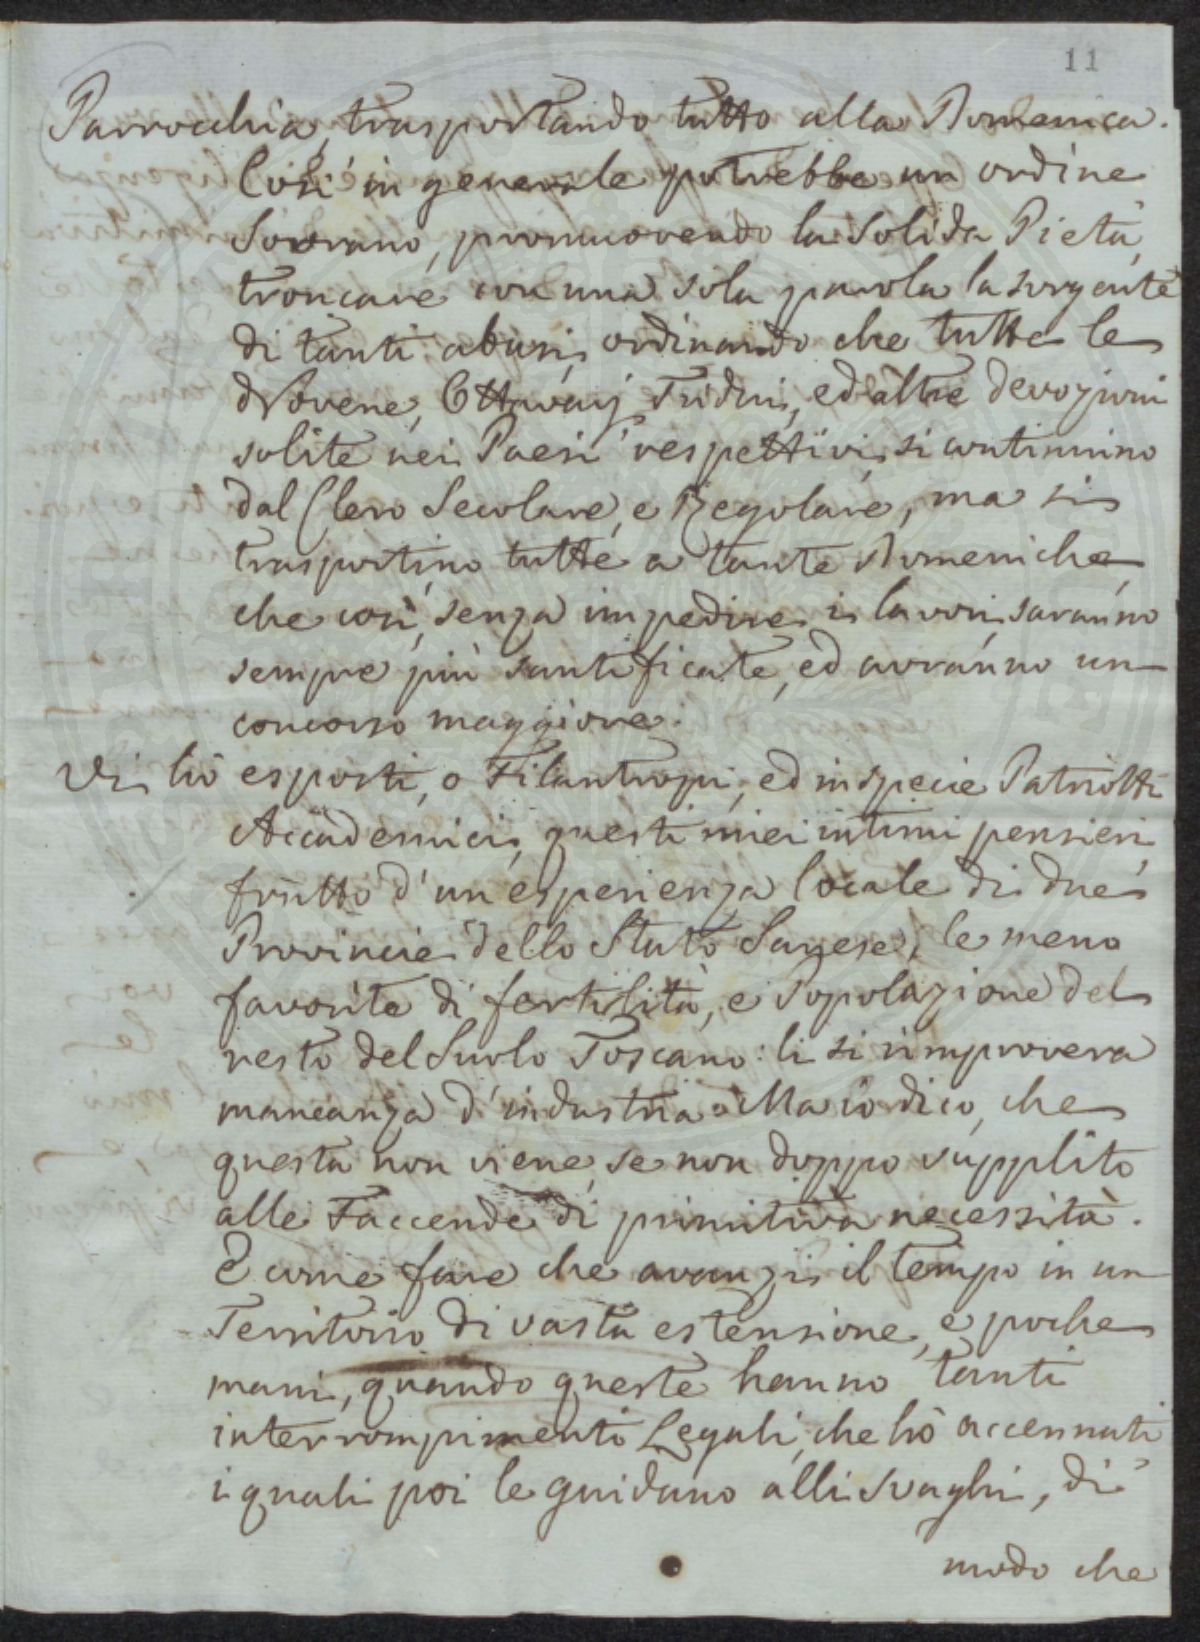 11
Parrocchia, trasportando tutto alla Domenica.
Così in generale potrebbe un ordine
Sovrano, promuovendo la solida Pietà,
troncare con una sola parola la sorgente
di tanti abusi, ordinando che tutte le
Novene, Ottavarj, Tridui, ed altre devozioni
solite nei Paesi respettivi, si continuino
dal Clero Secolare, e Regolare, ma si
trasportino tutte a tante Domeniche,
che così, senza impedire i lavori, saranno
sempre più santificate, ed avranno un
concorso maggiore.
Vi hò esposti, o Filantropi, ed in specie Patriotti
Accademici, questi miei intimi pensieri,
frutto d'un'esperienza locale di due
Provincie dello Stato Sanese, le meno
favorite di fertilità, e Popolazione del
resto del Suolo Toscano: li si rimprovera
mancanza d'industria. Ma io dico, che
questa non viene, se non doppo supplito
alle Faccende di primitiva necessità.
E come fare che avanzi il tempo in un
Territorio di vasta estensione, e poche
mani, quando queste hanno tanti
interrompimenti Legali, che hò accennati
i quali poi le guidano alli svaghi, di
modo che